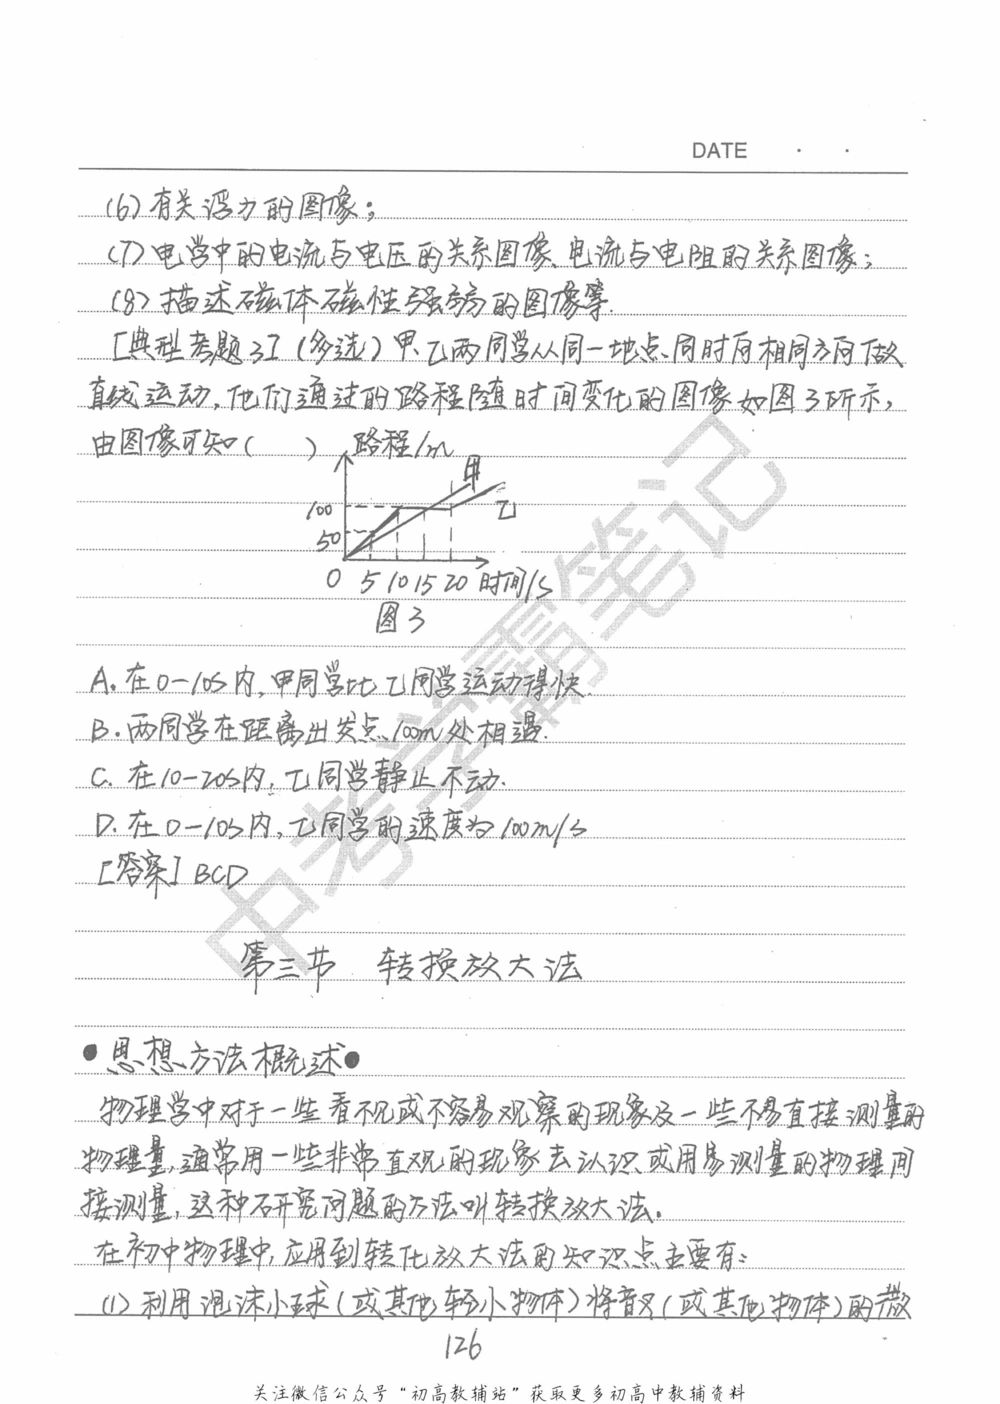 DATE · ·
(6)有关浮力的图像；
(7)电学中的电流与电压的关系图像、电流与电阻的关系图像；
(8)描述磁体磁性强弱的图像等.
[典型考题3](多选)甲、乙两同学从同一地点同时向相同方向做
直线运动,他们通过的路程随时间变化的图像如图3所示,
由图像可知( )
路程/m
甲
100
乙
50
0 5 10 15 20 时间/s
图3
A.在0-10s内,甲同学比乙同学运动得快.
B.两同学在距离出发点100m处相遇.
C.在10-20s内,乙同学静止不动.
D.在0-10s内,乙同学的速度为100m/s
[答案]BCD
第三节 转换放大法
●思想方法概述●
物理学中对于一些看不见或不容易观察的现象及一些不易直接测量的
物理量,通常用一些非常直观的现象去认识或用易测量的物理间
接测量,这种研究问题的方法叫转换放大法.
在初中物理中,应用到转化放大法的知识点主要有:
(1)利用泡沫小球(或其他轻小物体)将音叉(或其他物体)的微
126
关注微信公众号“初高教辅站”获取更多初高中教辅资料
中考学霸笔记